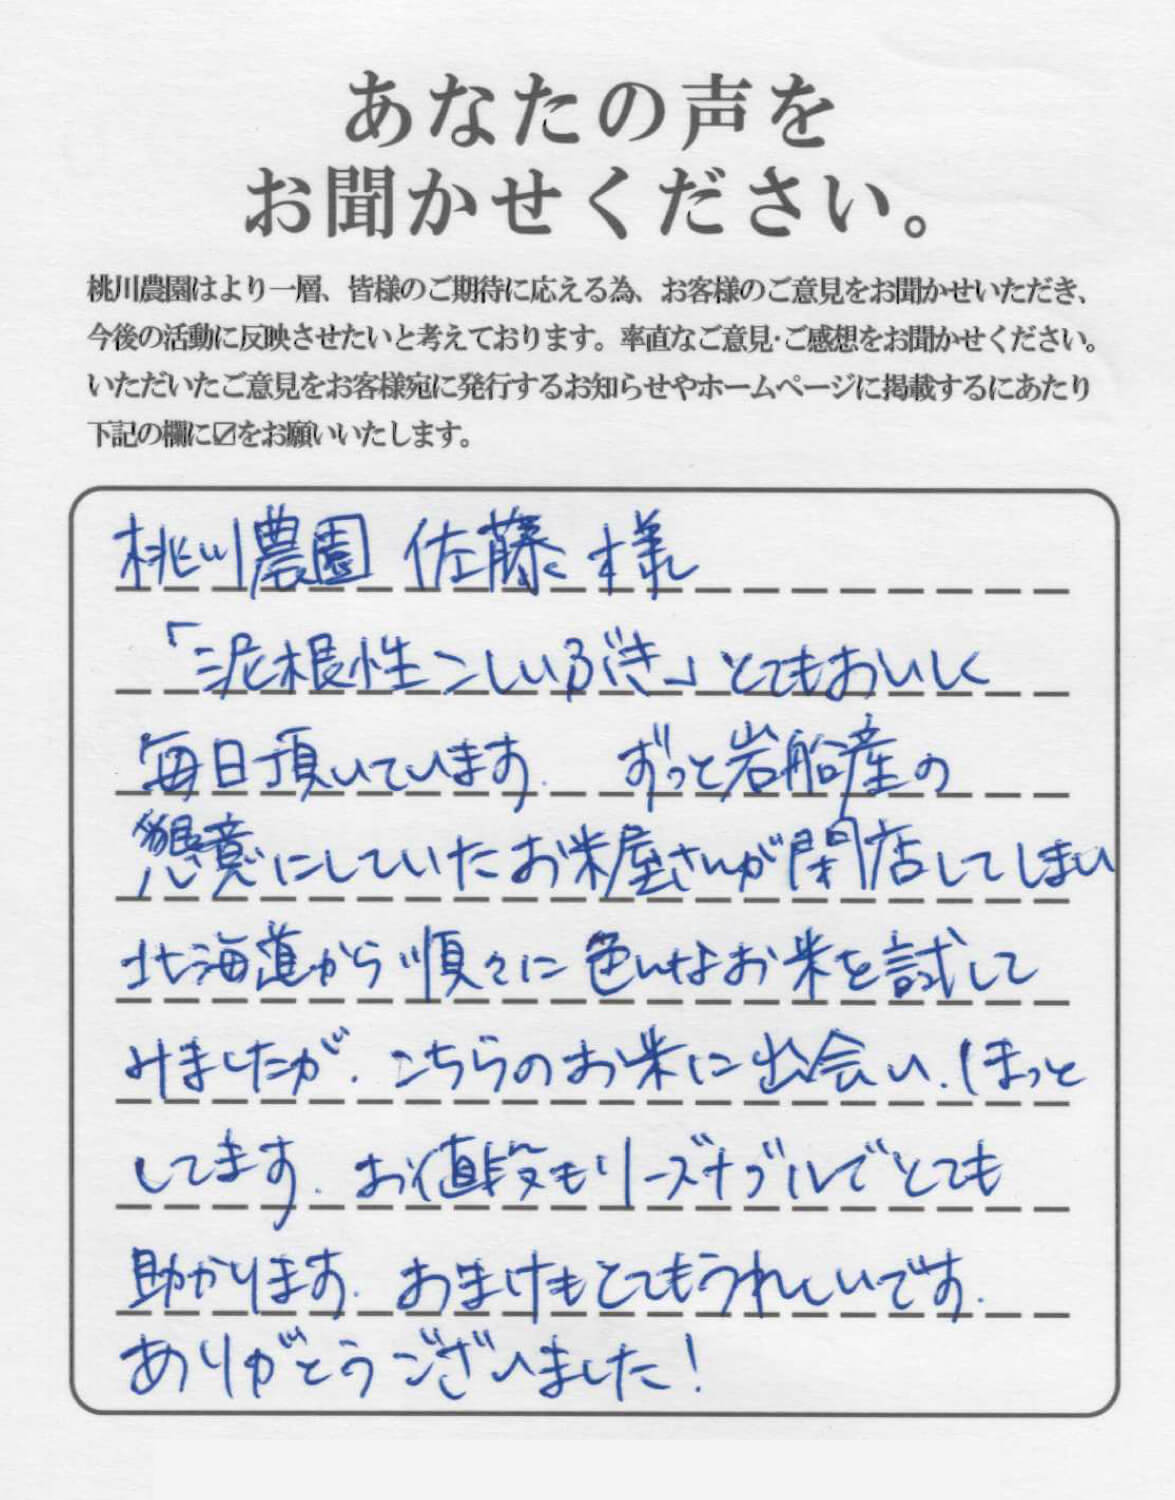 あなたの声を
お聞かせください。
桃川農園はより一層、皆様のご期待に応える為、お客様のご意見をお聞かせいただき、
今後の活動に反映させたいと考えております。率直なご意見・ご感想をお聞かせください。
いただいたご意見をお客様宛に発行するお知らせやホームページに掲載するにあたり
下記の欄に☑をお願いいたします。
桃川農園 佐藤 様
「泥根性こしいぶき」とてもおいしく
毎日頂いています. ずっと岩船産の
懇意にしていたお米屋さんが閉店してしまい
北海道から順々に色んなお米を試して
みましたが、こちらのお米に出会い、ほっと
してます. お値段もリーズナブルでとても
助かります. おまけもとてもうれしいです.
ありがとうございました!